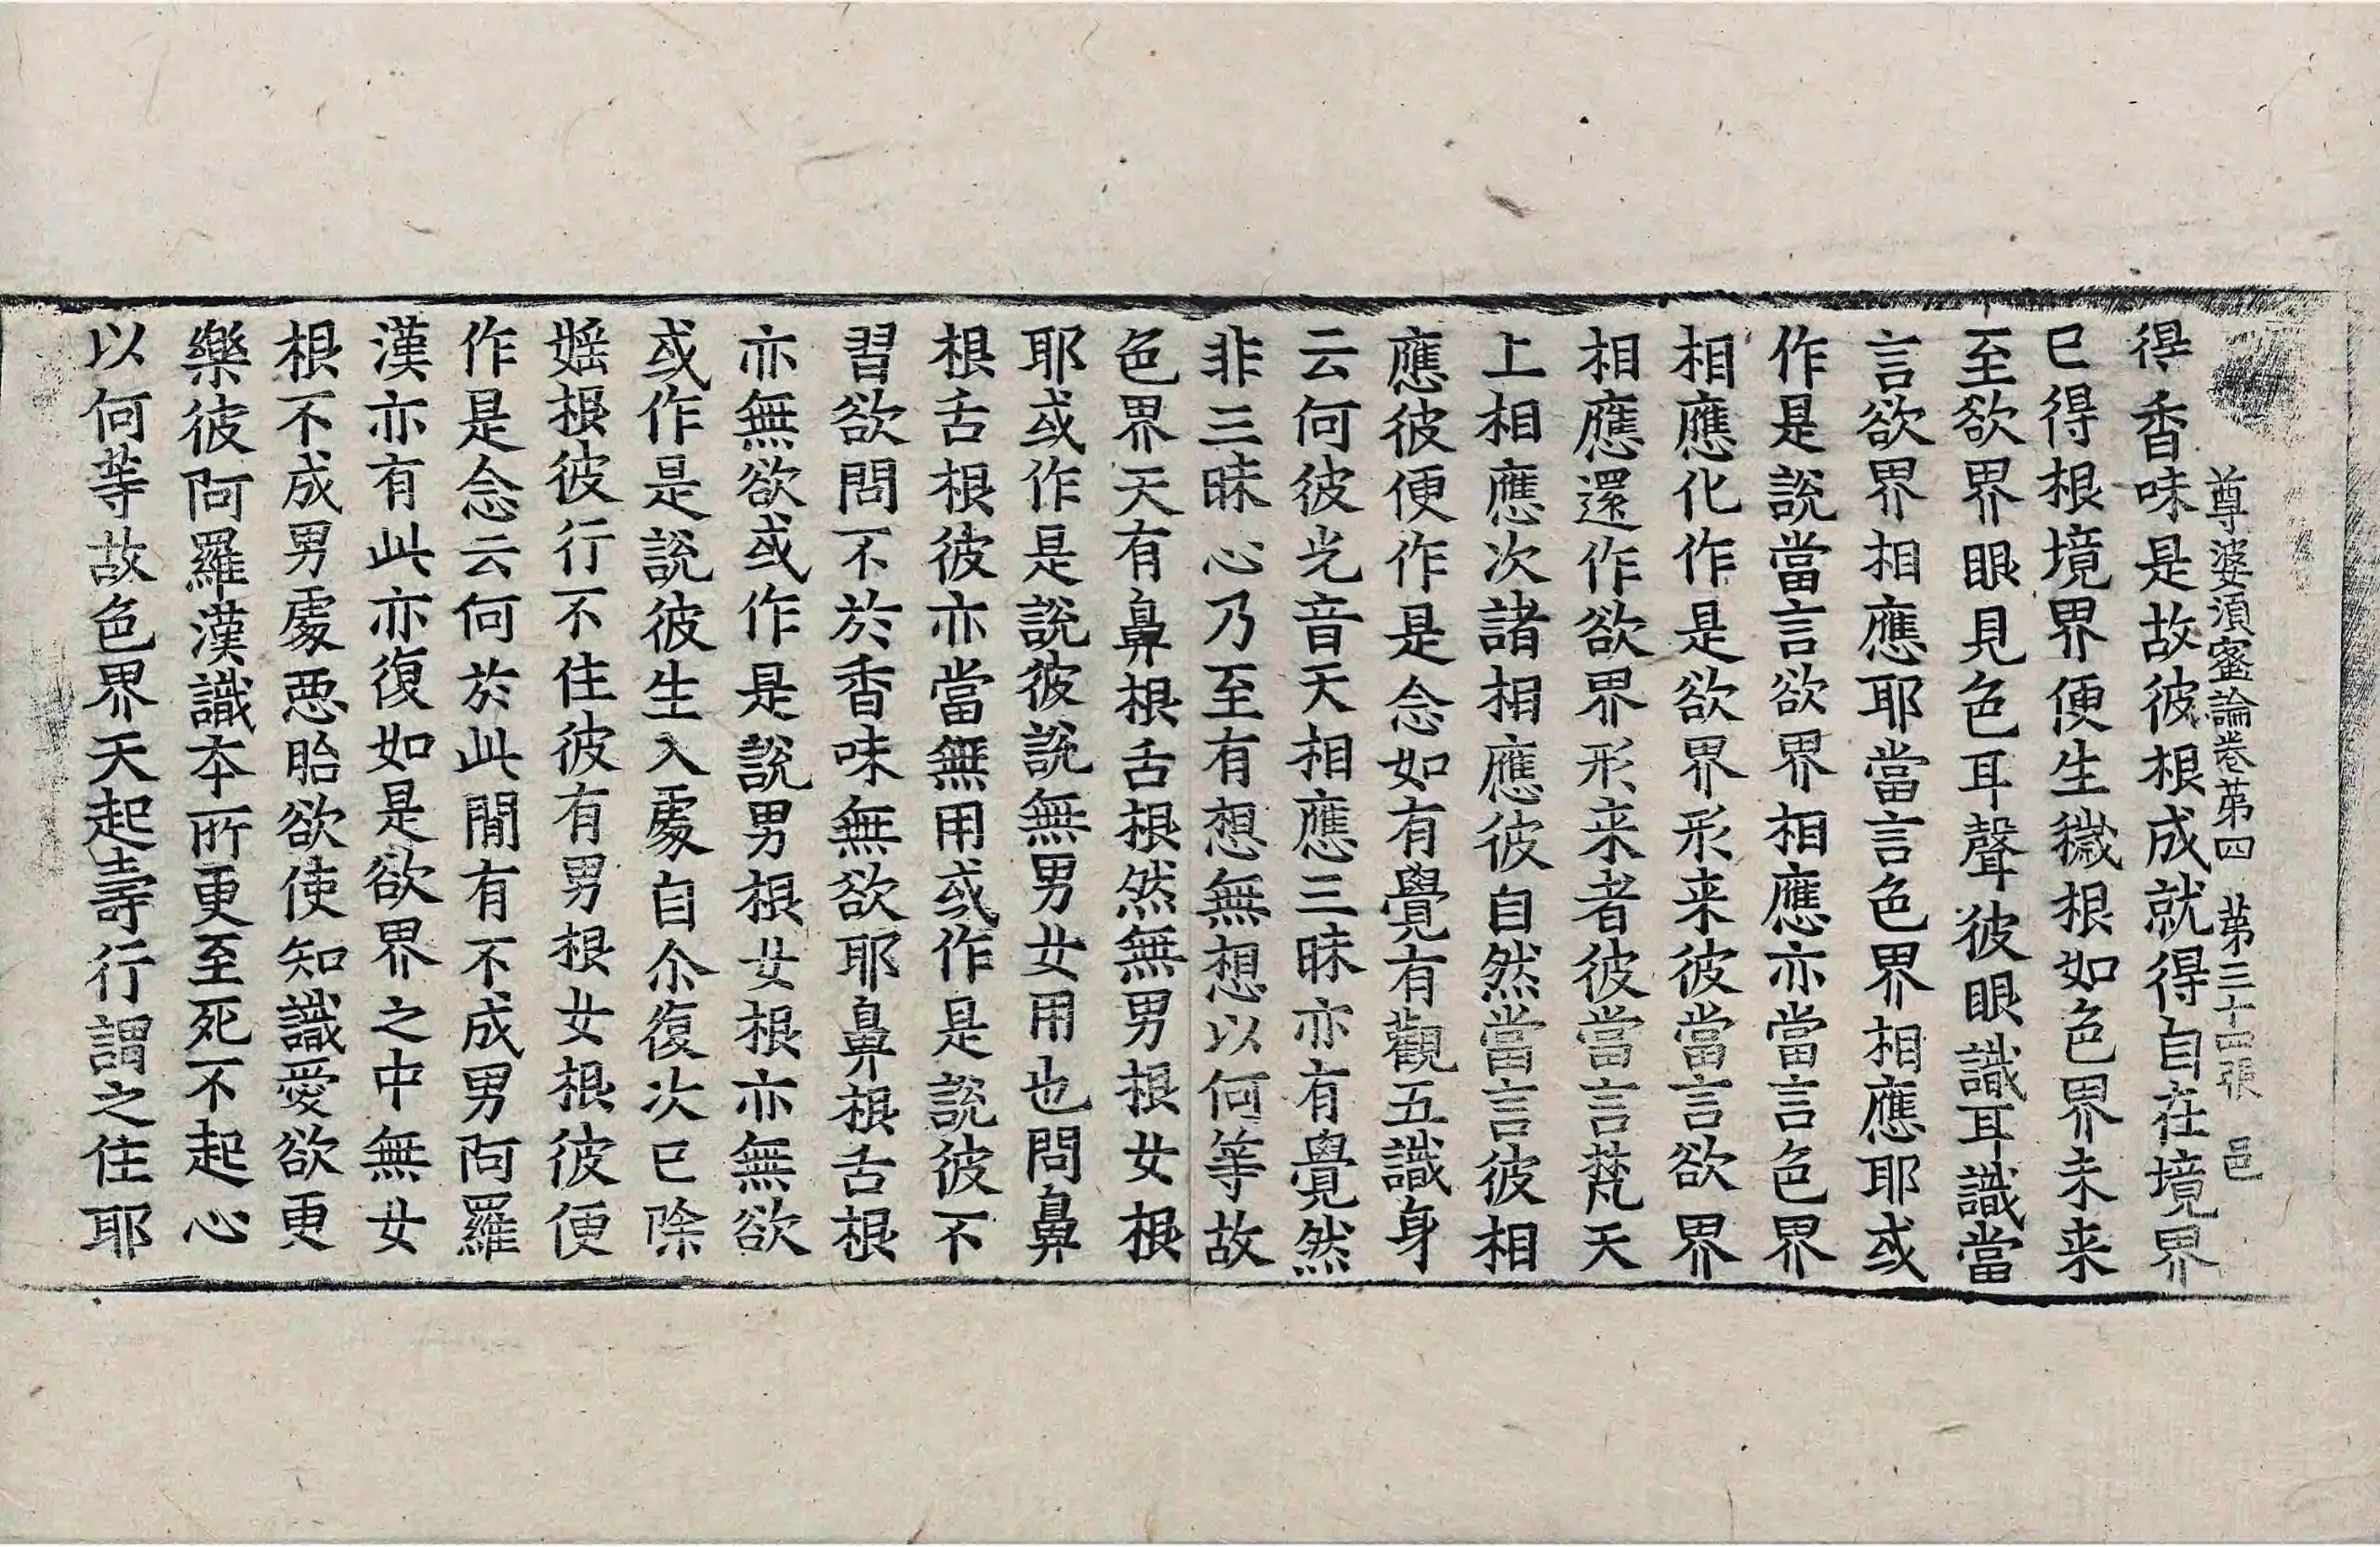 尊婆須蜜論卷第四 第三十四張 邑
得香味是故彼根成就得自在境界
已得根境界便生微根如色界未来
至欲界眼見色耳聲彼眼識耳識當
言欲界相應耶當言色界相應耶或
作是說當言欲界相應亦當言色界
相應化作是欲界形来彼當言欲界
相應還作欲界形来者彼當言梵天
上相應次諸相應彼自然當言彼相
應彼便作是念如有覺有觀五識身
云何彼光音天相應三昧亦有覺然
非三昧心乃至有想無想以何等故
色界天有鼻根舌根然無男根女根
耶或作是說彼說無男女用也問鼻
根舌根彼亦當無用或作是說彼不
習欲問不於香味無欲耶鼻根舌根
亦無欲或作是說男根女根亦無欲
或作是說彼生入處自尒復次已除
婬根彼行不住彼有男根女根彼便
作是念云何於此閒有不成男阿羅
漢亦有此亦復如是欲界之中無女
根不成男處惡胎欲使知識愛欲更
樂彼阿羅漢識本所更至死不起心
以何等故色界天起壽行謂之住耶